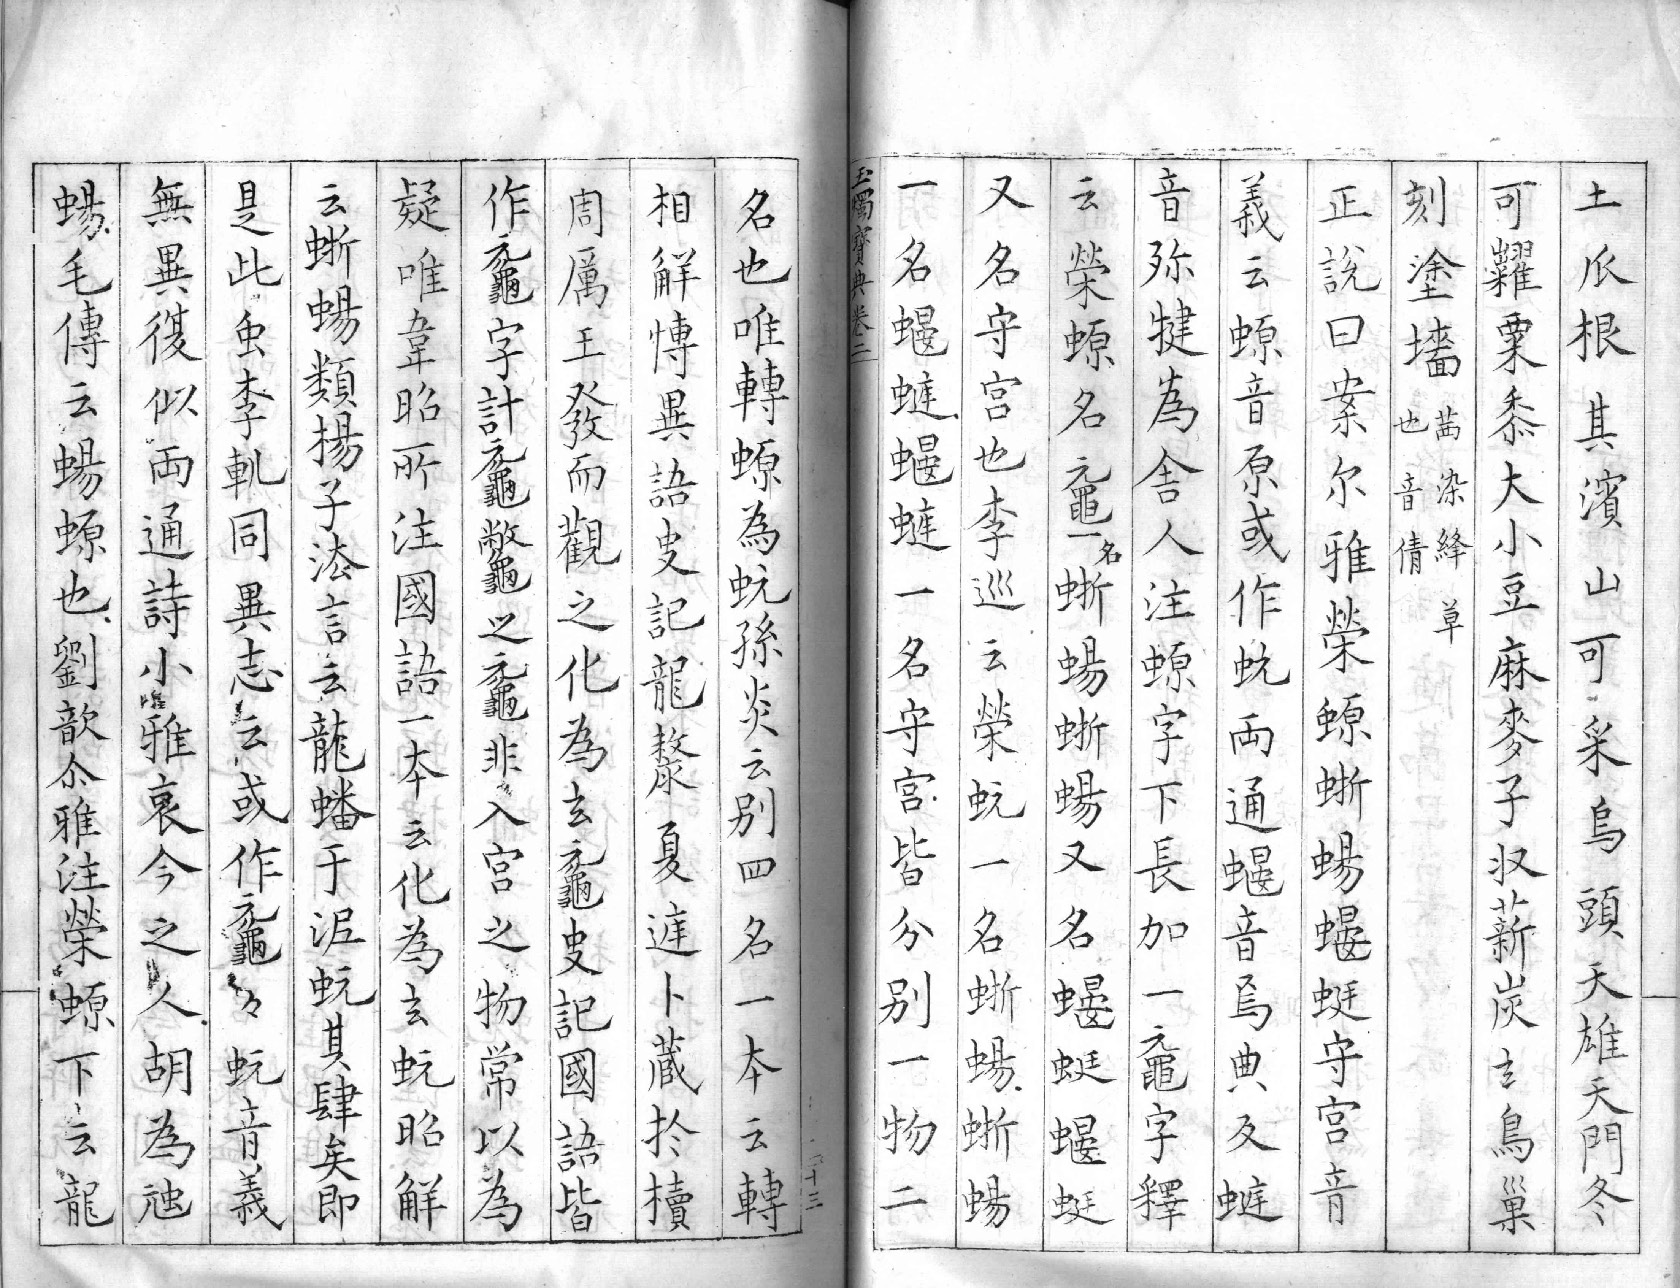 土瓜根其濱山可采烏頭天雄天門冬
可糶粟黍大小豆麻麥子収薪炭玄鳥巢
刻塗墻茜染絳草也音倩
正說曰案尔雅榮螈蜥蜴蝘蜓守宮音
義云螈音原或作蚖両通蝘音焉典反蜓
音殄犍為舍人注螈字下長加一黿字釋
云榮螈名黿一名蜥蜴蜥蜴又名蝘蜓蝘蜓
又名守宮也李巡云榮蚖一名蜥蜴蜥蜴
一名蝘蜓蝘蜓一名守宮皆分別一物二
玉燭寶典卷二
名也唯轉螈為蚖孫炎云別四名一本云轉
相解博異語史記龍漦夏庭卜蔵扵櫝
周厲王發而觀之化為玄黿史記國語皆
作黿字計黿鼈之黿非入宮之物常以為
疑唯韋昭所注國語一本云化為玄蚖昭解
云蜥蜴類揚子法言云龍蟠于泥蚖其肆矣即
是此虫李軌同異志云或作黿々蚖音義
無異復似両通詩小雅哀今之人胡為虺
蜴毛傳云蜴螈也劉歆尒雅注榮螈下云龍
二十三